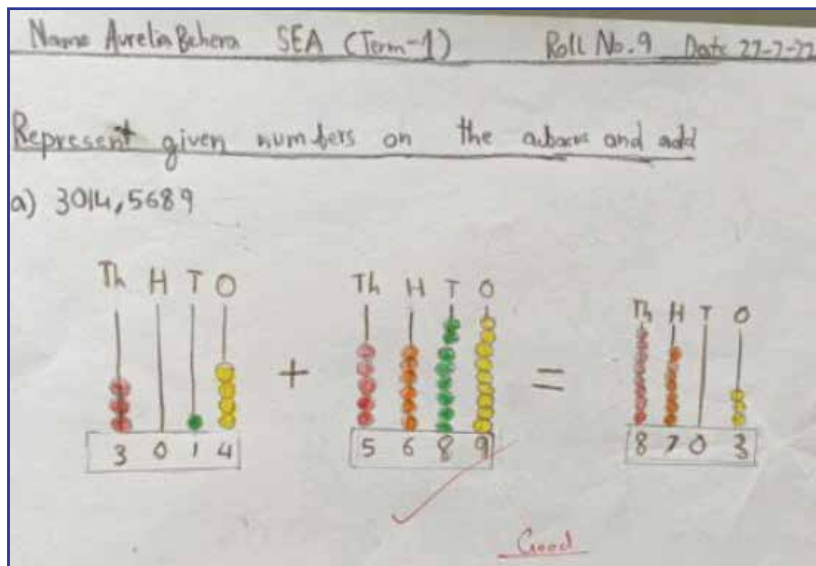 Name Aurelia Behera SEA (Term-1) Roll No. 9 Date 27-7-22
Represent given numbers on the abacus and add
a) 3014,5689
Th H T O Th H T O Th H T O
+ =
3 0 1 4 5 6 8 9 8 7 0 3
Good